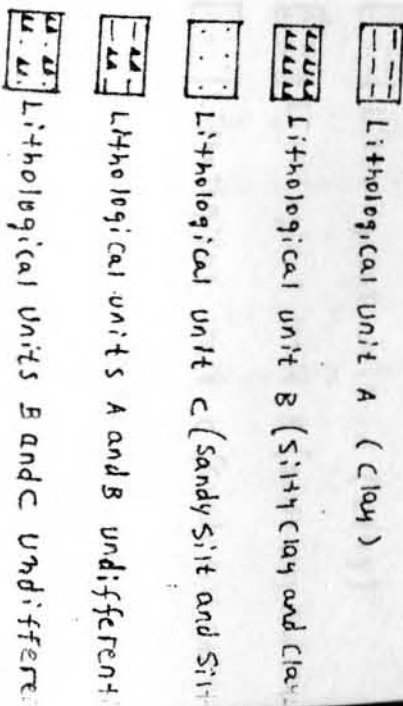 Lithological unit A (Clay)
Lithological unit B (Silty Clay and Clay
Lithological unit C (Sandy Silt and Silt
Lithological units A and B undifferent
Lithological units B and C undiffere